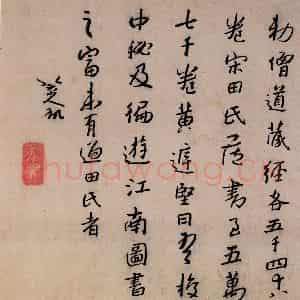 勅僧道藏經各五千四十八
卷宋田氏藏書至五萬
七千卷黃庭堅曰吾校
中秘及徧遊江南圖書
之富未有過田氏者